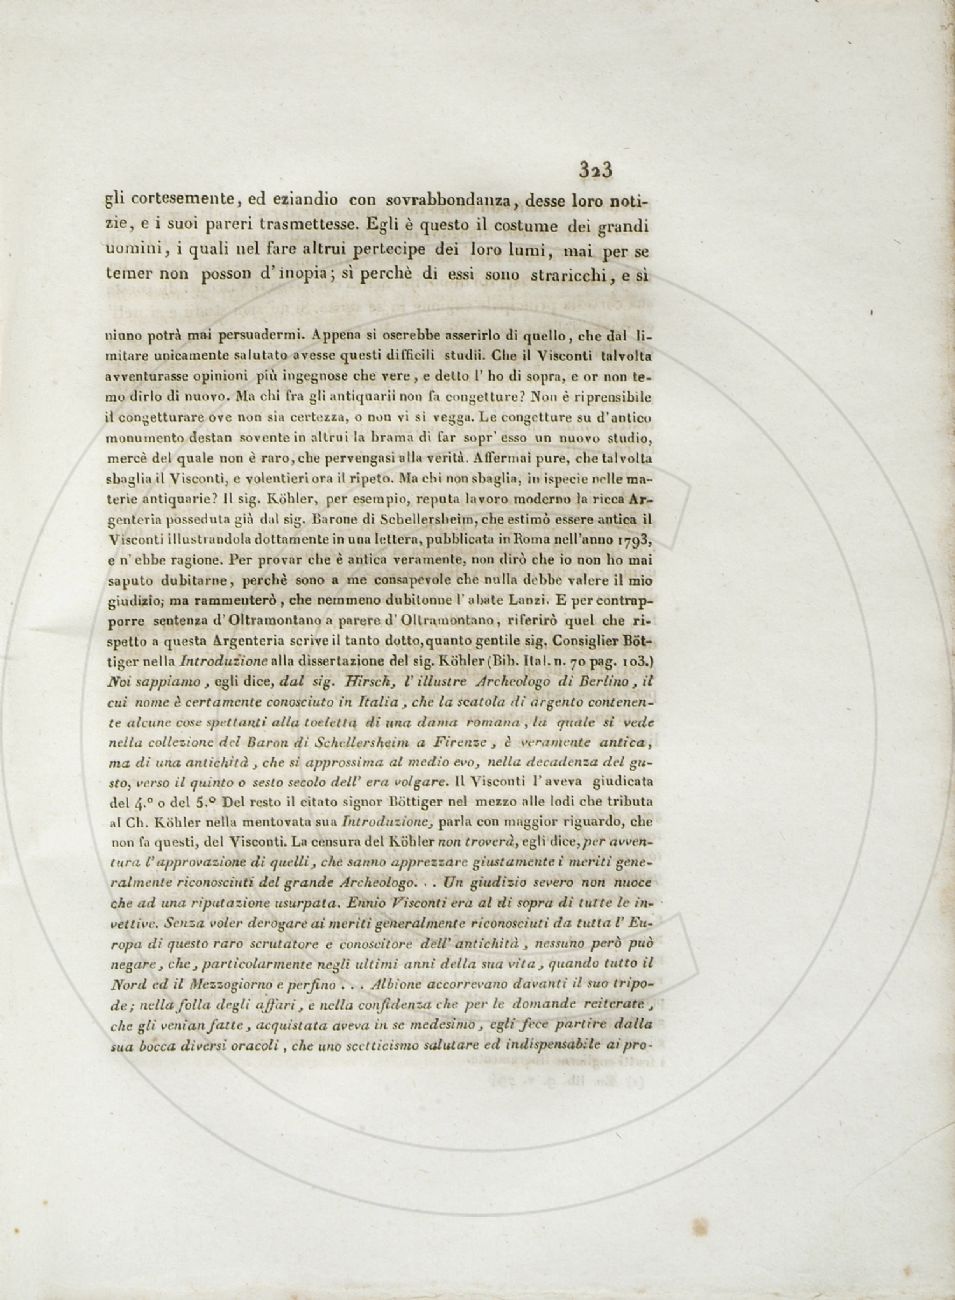 323
gli cortesemente, ed eziandio con sovrabbondanza, desse loro noti-
zie, e i suoi pareri trasmettesse. Egli è questo il costume dei grandi
uomini, i quali nel fare altrui pertecipe dei loro lumi, mai per se
temer non posson d'inopia; sì perchè di essi sono straricchi, e sì
niuno potrà mai persuadermi. Appena si oserebbe asserirlo di quello, che dal li-
mitare unicamente salutato avesse questi difficili studii. Che il Visconti talvolta
avventurasse opinioni più ingegnose che vere, e detto l'ho di sopra, e or non te-
mo dirlo di nuovo. Ma chi fra gli antiquarii non fa congetture? Non è riprensibile
il congetturare ove non sia certezza, o non vi si vegga. Le congetture su d'antico
monumento destan sovente in altrui la brama di far sopr' esso un nuovo studio,
mercè del quale non è raro, che pervengasi alla verità. Affermai pure, che talvolta
sbaglia il Visconti, e volentieri ora il ripeto. Ma chi non sbaglia, in ispecie nelle ma-
terie antiquarie? Il sig. Köhler, per esempio, reputa lavoro moderno la ricca Ar-
genteria posseduta già dal sig. Barone di Schellersheim, che estimò essere antica il
Visconti illustrandola dottamente in una lettera, pubblicata in Roma nell'anno 1793,
e n'ebbe ragione. Per provar che è antica veramente, non dirò che io non ho mai
saputo dubitarne, perchè sono a me consapevole che nulla debbe valere il mio
giudizio; ma rammenterò, che nemmeno dubitonne l'abate Lanzi. E per contrap-
porre sentenza d'Oltramontano a parere d'Oltramontano, riferirò quel che ri-
spetto a questa Argenteria scrive il tanto dotto, quanto gentile sig. Consiglier Böt-
tiger nella Introduzione alla dissertazione del sig. Köhler (Bib. Ital. n. 70 pag. 103.)
Noi sappiamo, egli dice, dal sig. Hirsch, l'illustre Archeologo di Berlino, il
cui nome è certamente conosciuto in Italia, che la scatola di argento contenen-
te alcune cose spettanti alla toeletta di una dama romana, la quale si vede
nella collezione del Baron di Schellersheim a Firenze, è veramente antica,
ma di una antichità, che si approssima al medio evo, nella decadenza del gu-
sto, verso il quinto o sesto secolo dell' era volgare. Il Visconti l'aveva giudicata
del 4.° o del 5.° Del resto il citato signor Böttiger nel mezzo alle lodi che tributa
al Ch. Köhler nella mentovata sua Introduzione, parla con maggior riguardo, che
non fa questi, del Visconti. La censura del Köhler non troverà, egli dice, per avven-
tura l'approvazione di quelli, che sanno apprezzare giustamente i meriti gene-
ralmente riconosciuti del grande Archeologo. . . Un giudizio severo non nuoce
che ad una riputazione usurpata. Ennio Visconti era al di sopra di tutte le in-
vettive. Senza voler derogare ai meriti generalmente riconosciuti da tutta l' Eu-
ropa di questo raro scrutatore e conoscitore dell' antichità, nessuno però può
negare, che, particolarmente negli ultimi anni della sua vita, quando tutto il
Nord ed il Mezzogiorno e perfino . . . Albione accorrevano davanti il suo tripo-
de; nella folla degli affari, e nella confidenza che per le domande reiterate,
che gli venian fatte, acquistata aveva in se medesimo, egli fece partire dalla
sua bocca diversi oracoli, che uno scetticismo salutare ed indispensabile ai pro-